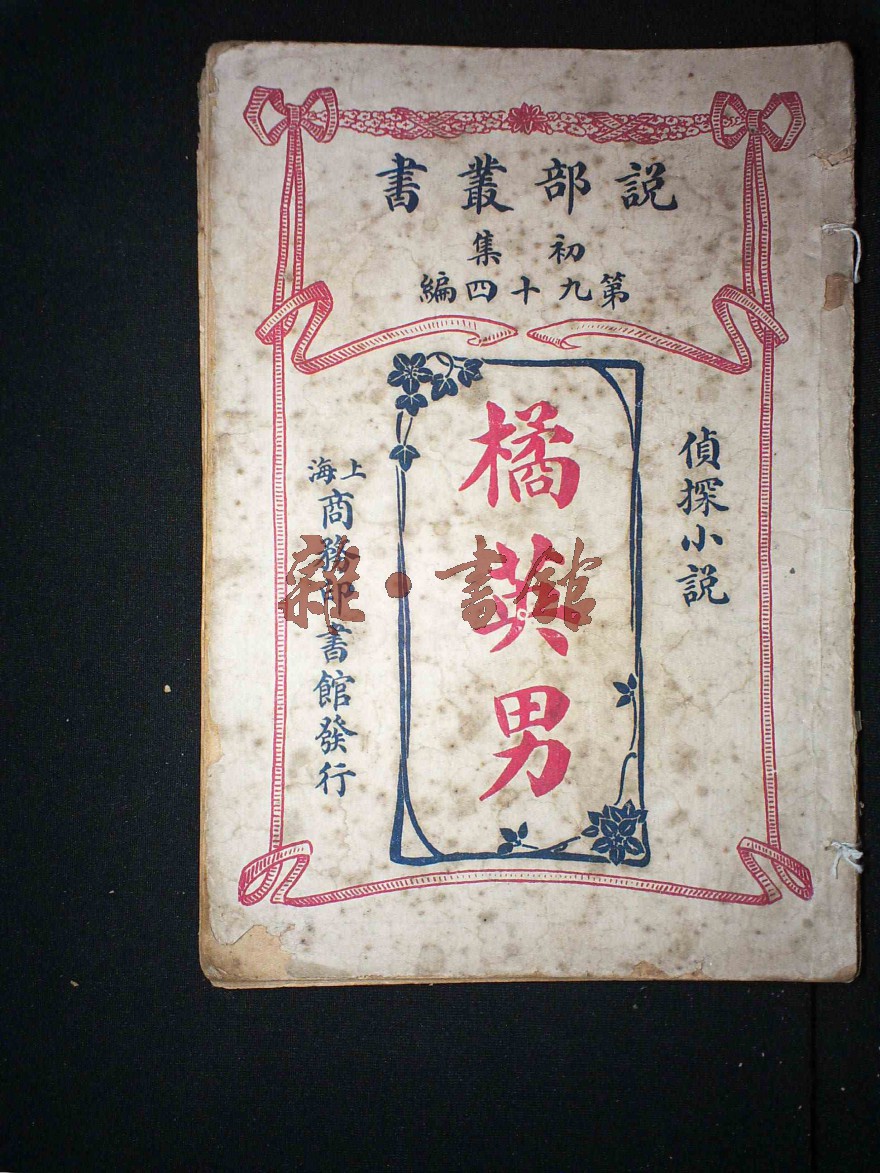 説部叢書
初集
第九十四編
偵探小説
橘英男
上海商務印書館發行
雜·書館